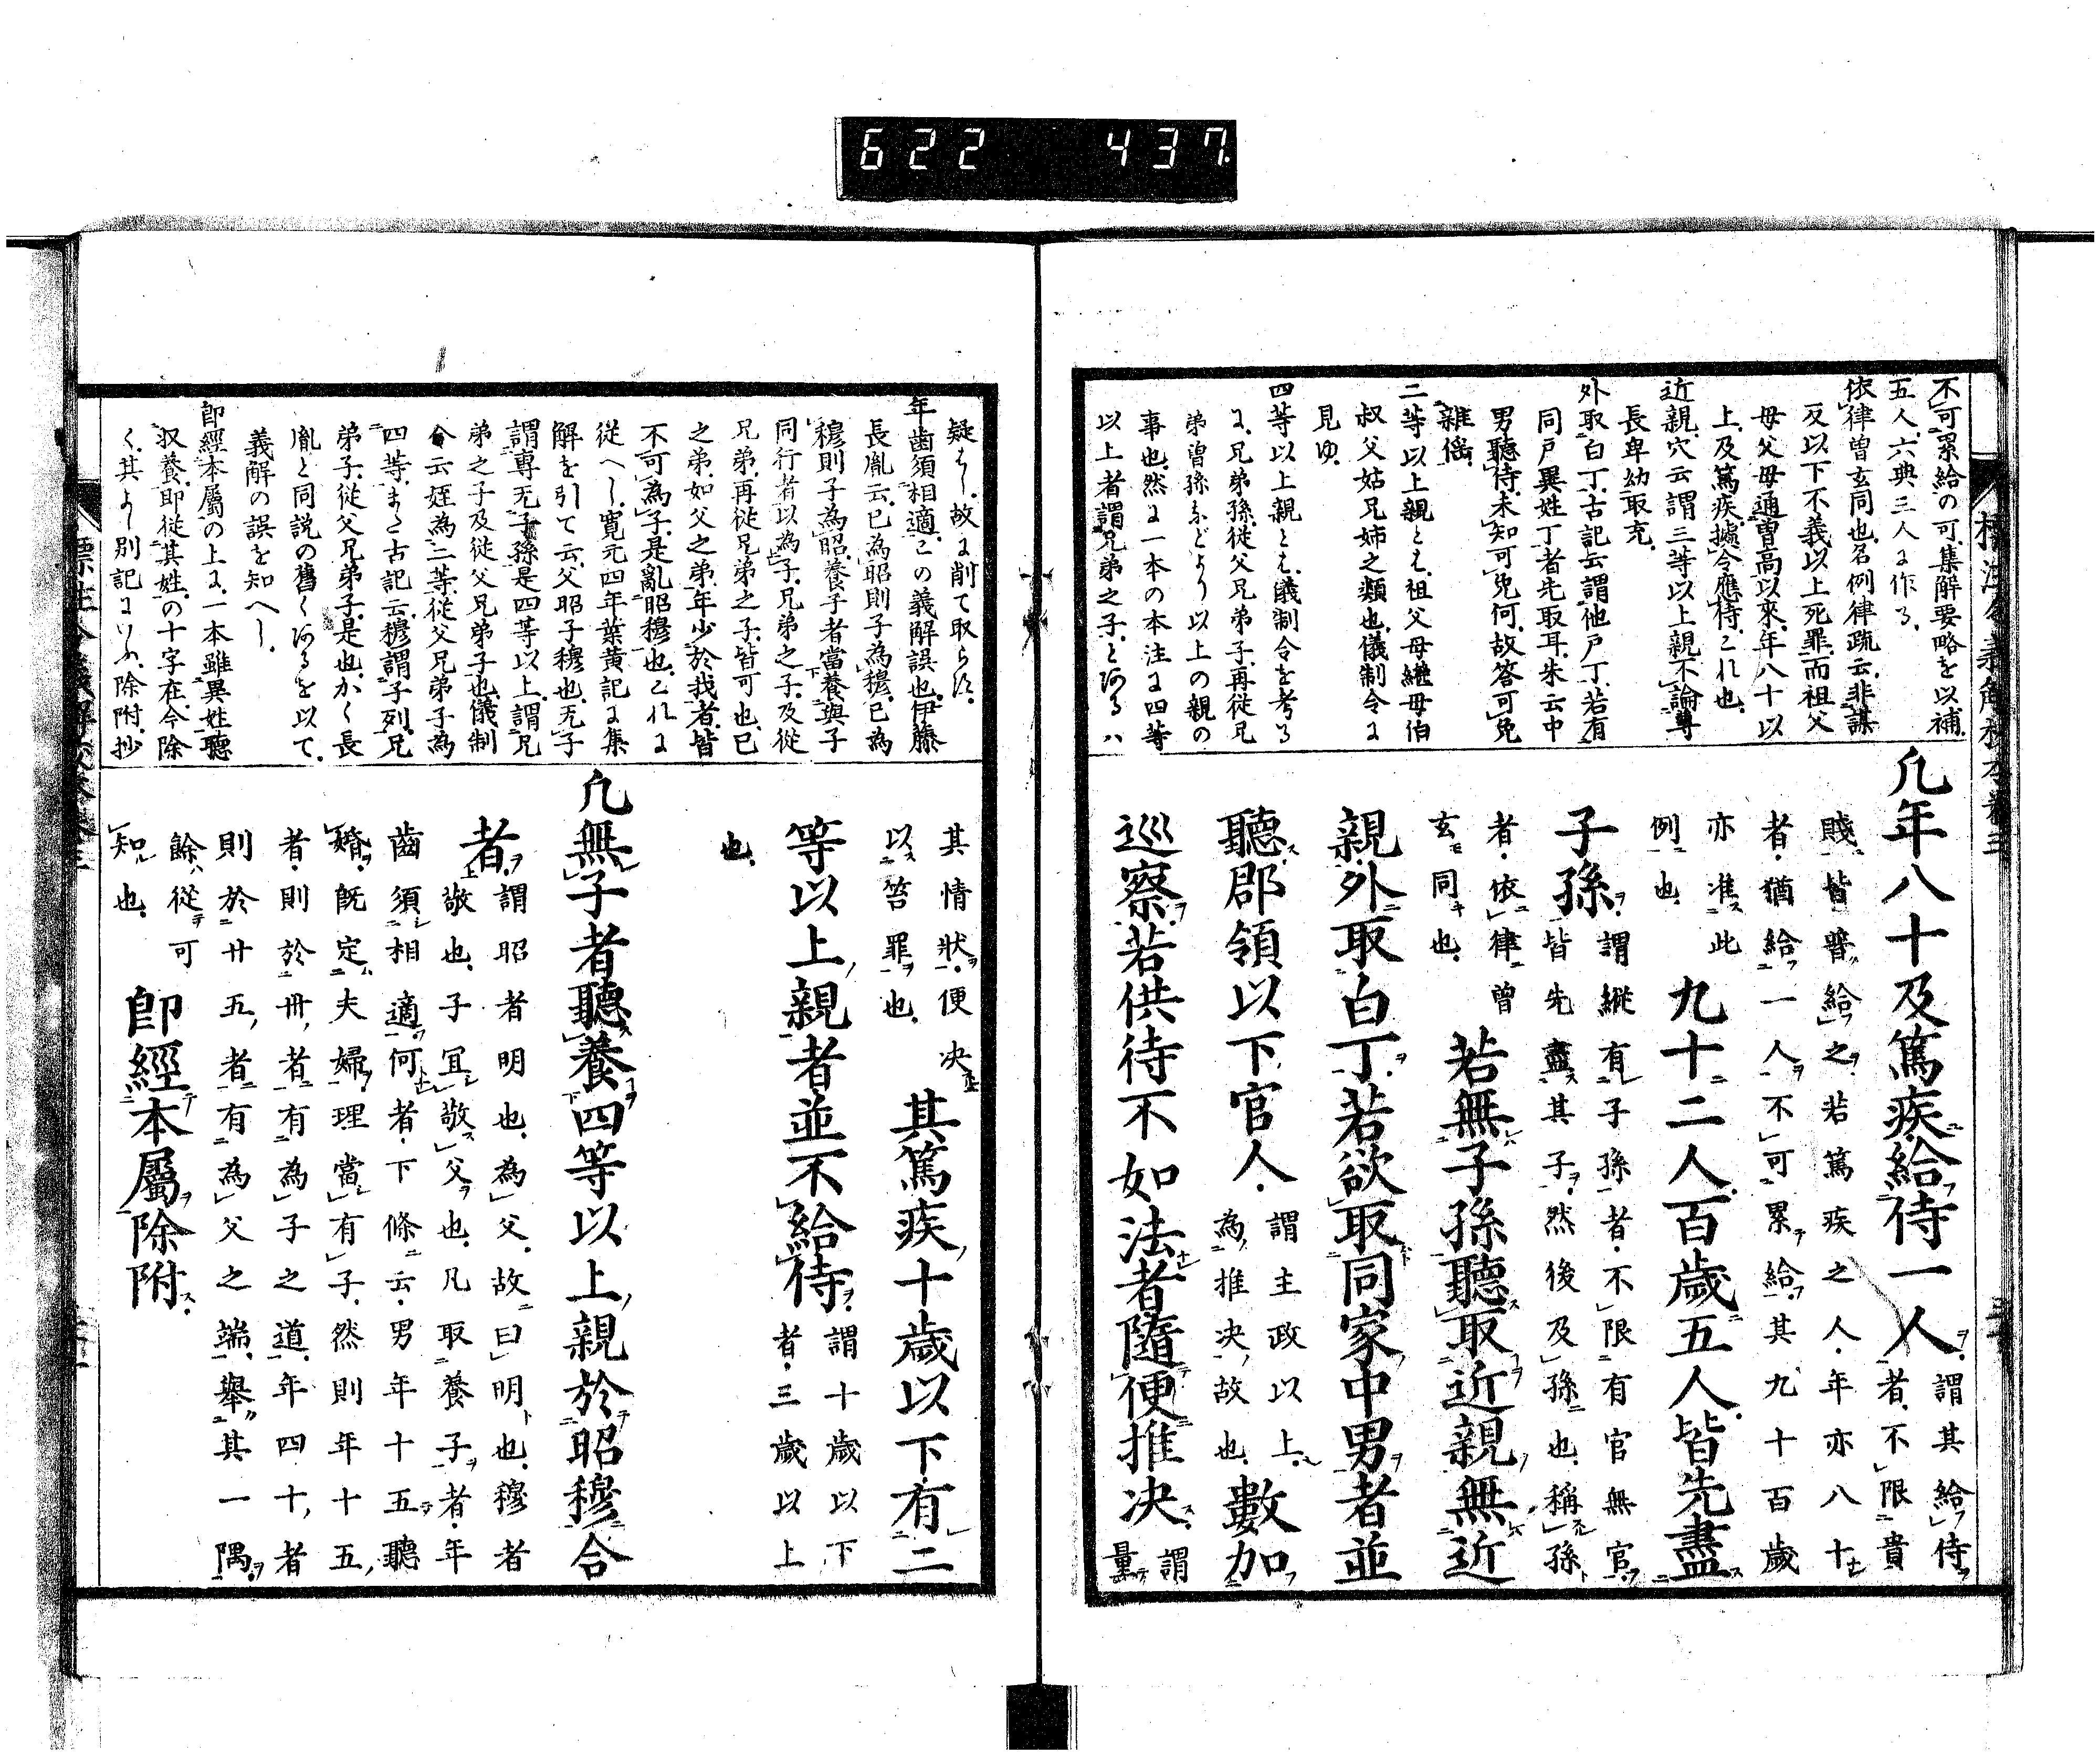 622 437
不可累給の可、集解要略を以補、
五人、六典三人に作る、
依律曽玄同也、名例律疏云、非謀
反以下不義以上死罪、而祖父
母父母通曽高以來、年八十以
上、及篤疾、據令應侍、これ也、
近親、穴云謂三等以上親、不論尊
長卑幼取充、
外取白丁、古記云謂他戸丁、若有
同戸異姓丁者先取耳、朱云中
男聽侍、未知可免何、故答可免
雜徭、
二等以上親とは、祖父母繼母伯
叔父姑兄姉之類也、儀制令に
見ゆ、
四等以上親とは、儀制令を考る
に、兄弟孫、從父兄弟子、再從兄
弟曽孫などより以上の親の
事也、然に一本の本注に四等
以上者謂兄弟之子、とあるハ
凡年八十及篤疾給侍一人、謂其給侍
者、不限貴
賤皆普給之、若篤疾之人、年亦八十
者、猶給一人、不可累給、其九十百歲
亦准此
例也、
九十二人、百歲五人、皆先盡
子孫、謂縱有子孫者、不限有官無官、
皆先盡其子、然後及孫也、稱孫
者、依律曽
玄同也、
若無子孫聽取近親、無近
親、外取白丁、若欲取同家中男者並
聽、郡領以下官人、謂主政以上、
為推决、故也、
數加
巡察、若供侍不如法者隨便推决、謂
量
疑はし、故に削て取らず、
年齒須相適、この義解誤也、伊藤
長胤云、已為昭則子為穆、已為
穆則子為昭、養子者當養與子
同行者以為子、兄弟之子、及從
兄弟、再從兄弟之子、皆可也、已
之弟、如父之弟、年少於我者、皆
不可為子、是亂昭穆也、これに
從へし、寛元四年葉黄記に集
解を引て云、父昭子穆也、无子
謂專无子孫是四等以上、謂兄
弟之子及從父兄弟子也、儀制
令云姪為二等、從父兄弟子為
四等、また古記云、穆謂子列、兄
弟子、從父兄弟子、是也、かく長
胤と同説の舊くあるを以て、
義解の誤を知へし、
即經本屬の上に、一本雖異姓聽
収養、即從其姓、の十字在、今除
く、其よし別記にいふ、除附、抄
其情狀、便决
以笞罪也、
其篤疾、十歲以下、有二
等以上親者並不給侍、謂十歲以下
者、三歲以上
也、
凡無子者聽養四等以上親於昭穆合
者、謂昭者明也、為父、故曰明也、穆者
敬也、子宜敬父也、凡取養子者、年
齒須相適、何者、下條云、男年十五聽
婚、既定夫婦、理當有子、然則年十五
者、則於卅者有為子之道、年四十者
則於廿五者有為父之端、舉其一隅、
餘從可
知也、
即經本屬除附、